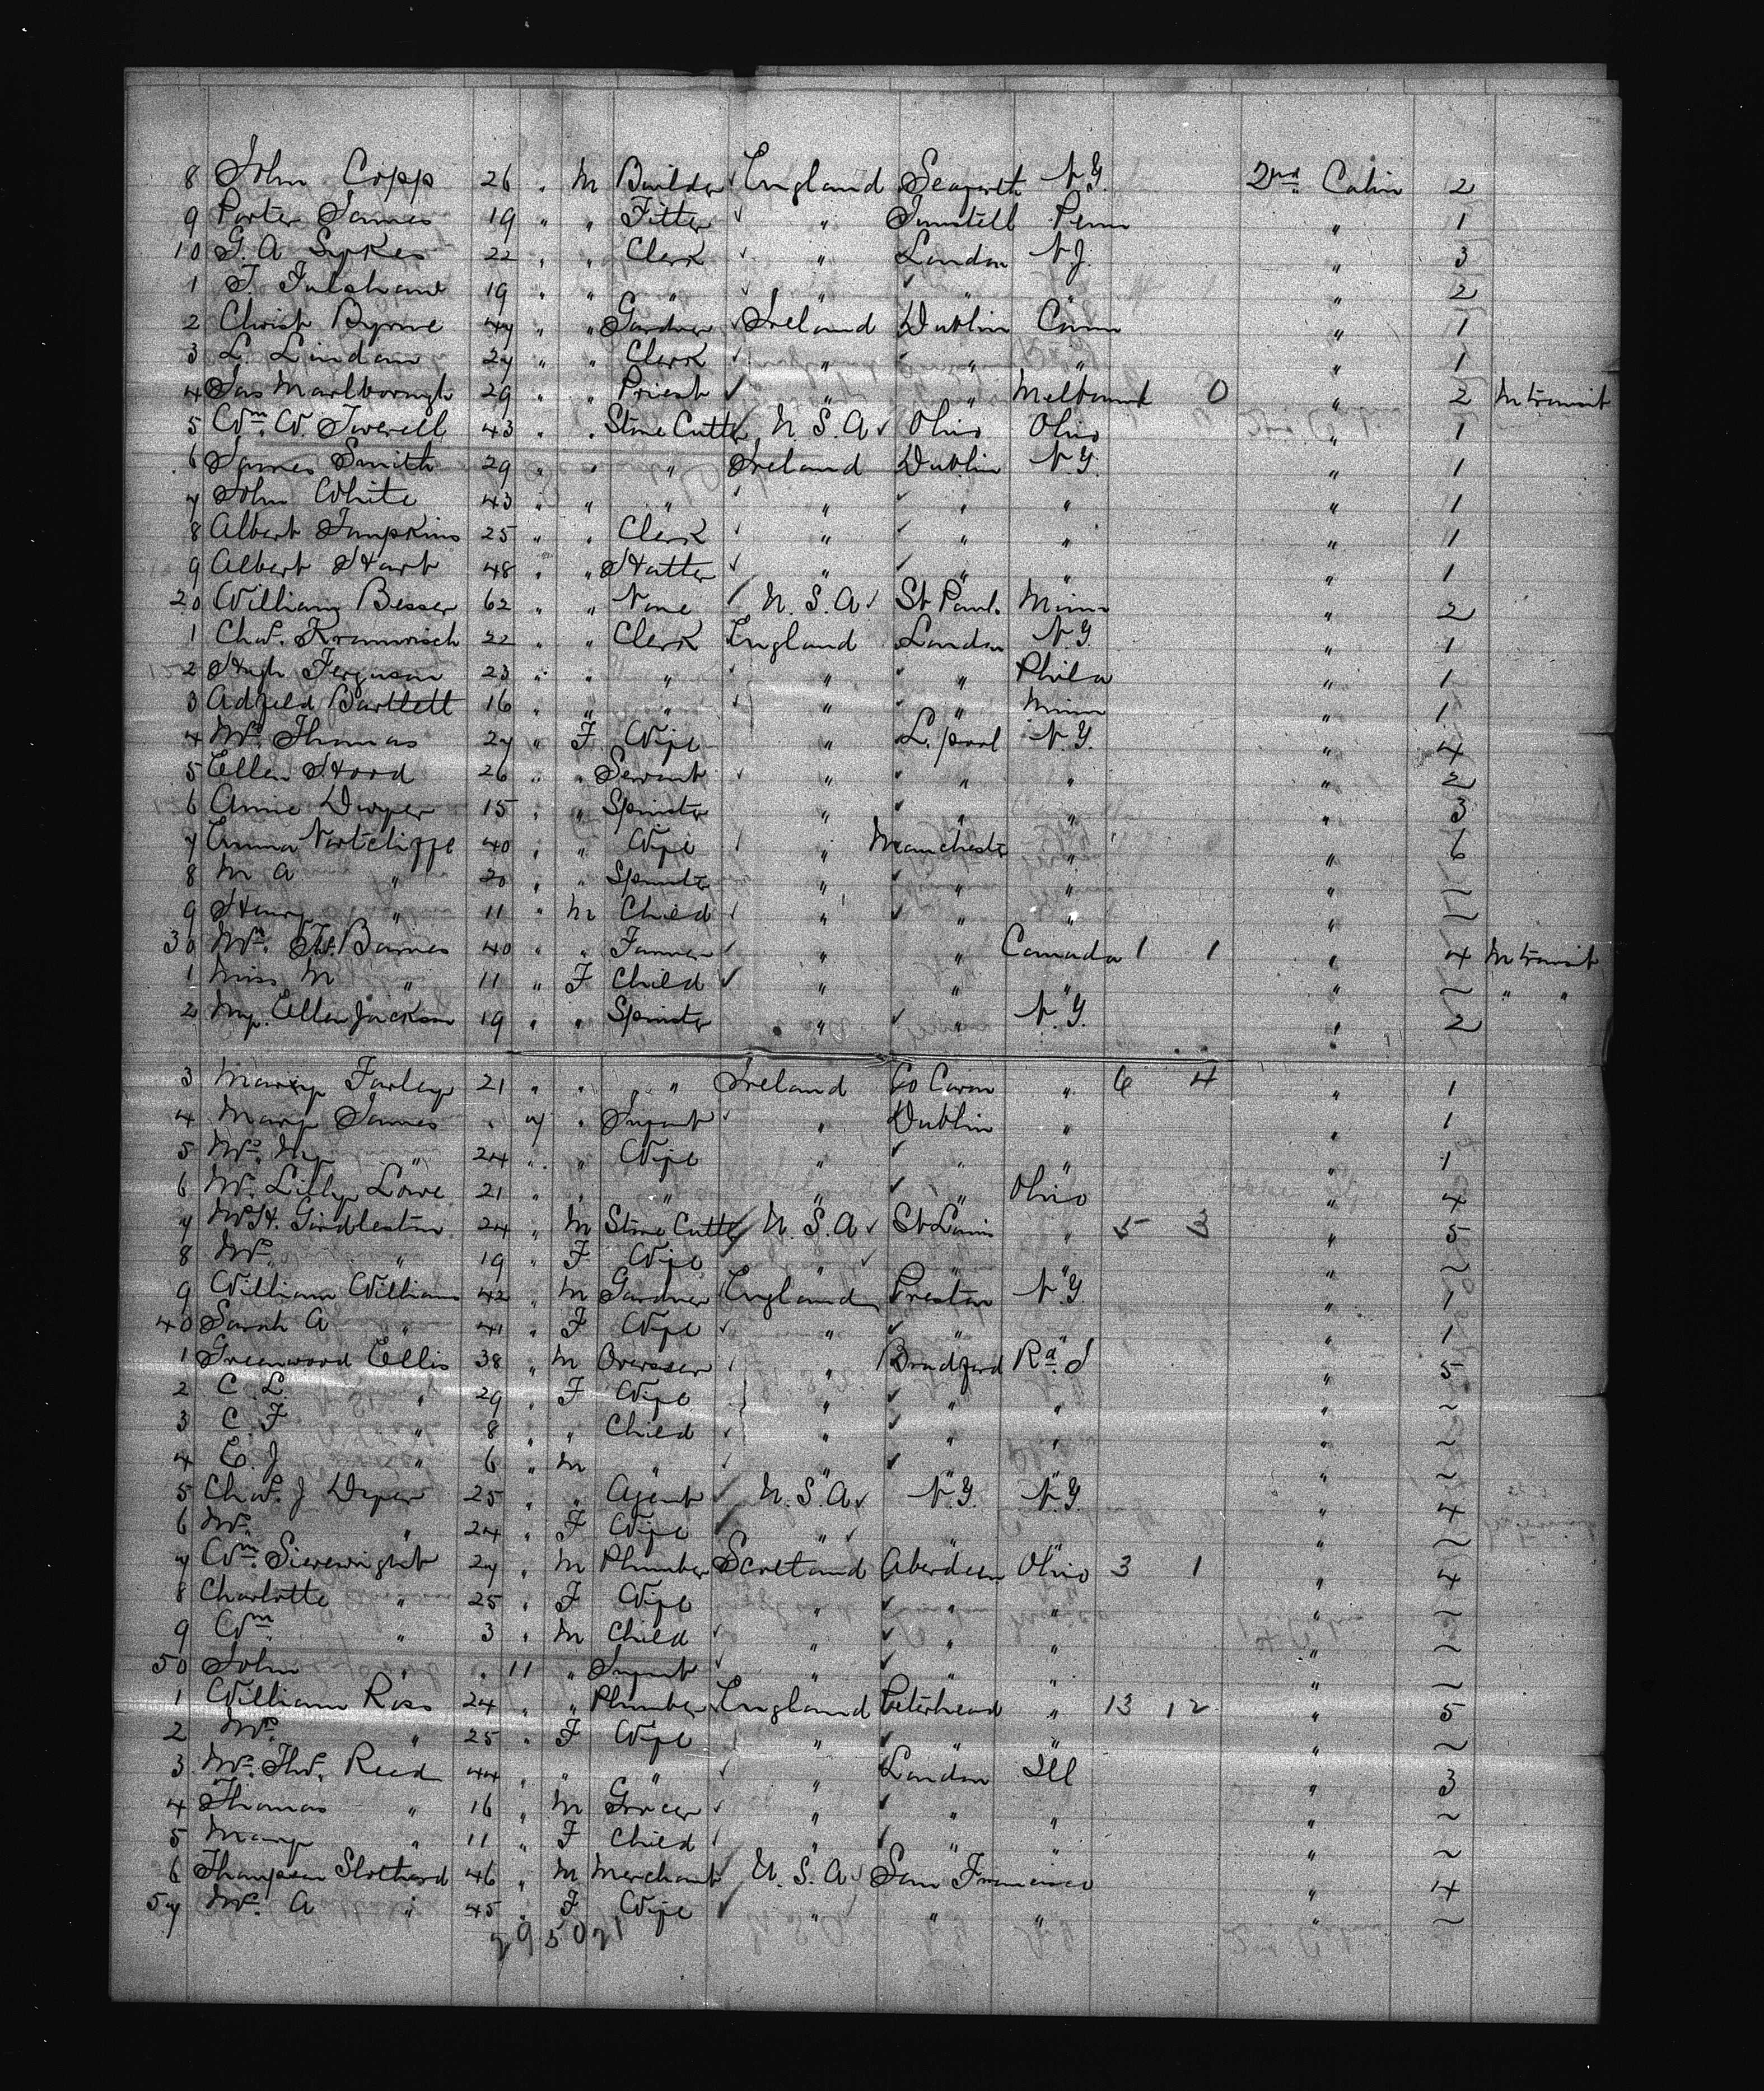 8 John Copp 26 " M Builder England Seaforth N.Y. 2nd Cabin 2
9 Porter James 19 " " Fitter " Penn " 1
10 G. A. Sykes 22 " " Clerk " London N.J. " 3
1 19 " " " " " " " 2
2 Christ Byrne 47 " " Gardner Ireland Dublin Conn " 1
3 L. Lindam 27 " " Clerk " " " " 1
4 Jas Marlborough 29 " " Priest " " 0 " 2 In transit
5 Wm. W. 43 " " Stone Cutter U.S.A. Ohio Ohio " 1
6 James Smith 29 " " " Ireland Dublin N.Y. " 1
7 John White 43 " " " " " " " 1
8 Albert Tompkins 25 " " Clerk " " " " 1
9 Albert Hart 48 " " Hatter " " " " 1
20 William Besser 62 " " None U.S.A. St Paul. Minn " 2
1 Chas. 22 " " Clerk England London N.Y. " 1
2 Hugh Ferguson 23 " " " " " Phila " 1
3 Bartlett 16 " " " " " Minn " 1
4 Mrs. Thomas 27 " F Wife " L.pool N.Y. " 4
5 Ellen Hood 26 " " Servant " " " " 2
6 Annie Dwyer 15 " " Spinster " " " " 3
7 Emma 40 " " Wife " Manchester " " 6
8 M A " 20 " " Spinster " " " " ~
9 Henry " 11 " M Child " " " " ~
30 Mr. Barnes 40 " " Farmer " " Canada 1 1 " 4 In transit
1 Miss M " 11 " F Child " " " " ~ " "
2 My. Ellen Jackson 19 " " Spinster " " N.Y. " 2
3 Mary Farley 21 " " " Ireland Co Cavan " 6 4 " 1
4 Mary James " 7 " Infant " Dublin " " 1
5 Mrs. My " 24 " " Wife " " " " 1
6 Mrs. Lilly Lowe 21 " " " " " Ohio " 4
7 Mr H. Girdlestone 24 " M Stone Cutter U.S.A. St Louis " 5 3 " 5
8 Mrs. " 19 " F Wife " " " " ~
9 William Williams 42 " M Gardner England Preston N.Y. " 1
40 Sarah A " 41 " F Wife " " " " 1
1 Greenwood Ellis 38 " M Overseer " Bradford Rd. I " 5
2 C. L. " 29 " F Wife " " " " ~
3 C. F " 8 " " Child " " " " ~
4 E. J " 6 " M " " " " " ~
5 Chas. J 25 " " Agent U.S.A. N.Y. N.Y. " 4
6 Mrs. " 24 " F Wife " " " " ~
7 Wm. Sievewright 27 " M Plumber Scotland Aberdeen Ohio 3 1 " 4
8 Charlotte " 25 " F Wife " " " " ~
9 Wm. " 3 " M Child " " " " ~
50 John " " 11 " Infant " " " " ~
1 William Ross 24 " " Plumber England Peterhead " 13 12 " 5
2 Mrs. " 25 " F Wife " " " " ~
3 Mrs. Thos. Reed 44 " " " " London Ill " 3
4 Thomas " 16 " M Grocer " " " " ~
5 Mary " 11 " F Child " " " " ~
6 Thompson Slothard 46 " M Merchant U.S.A. San Francisco " 4
57 Mrs. A " 45 " F Wife " " " " ~